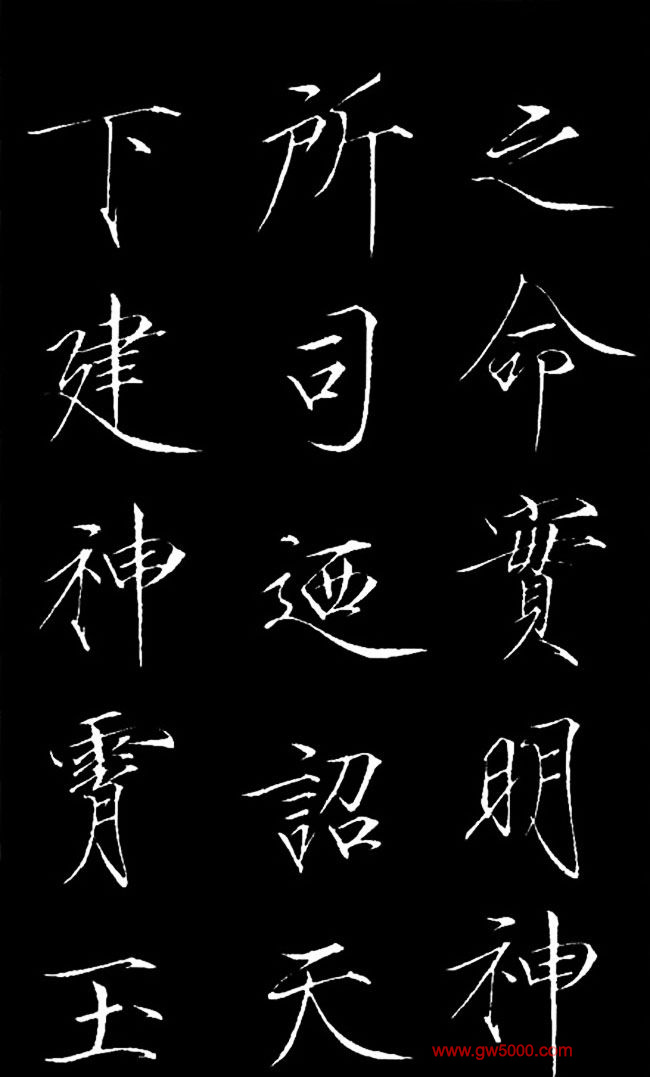 之命實明神
所司廼詔天
下建神霄玉
www.gw5000.com